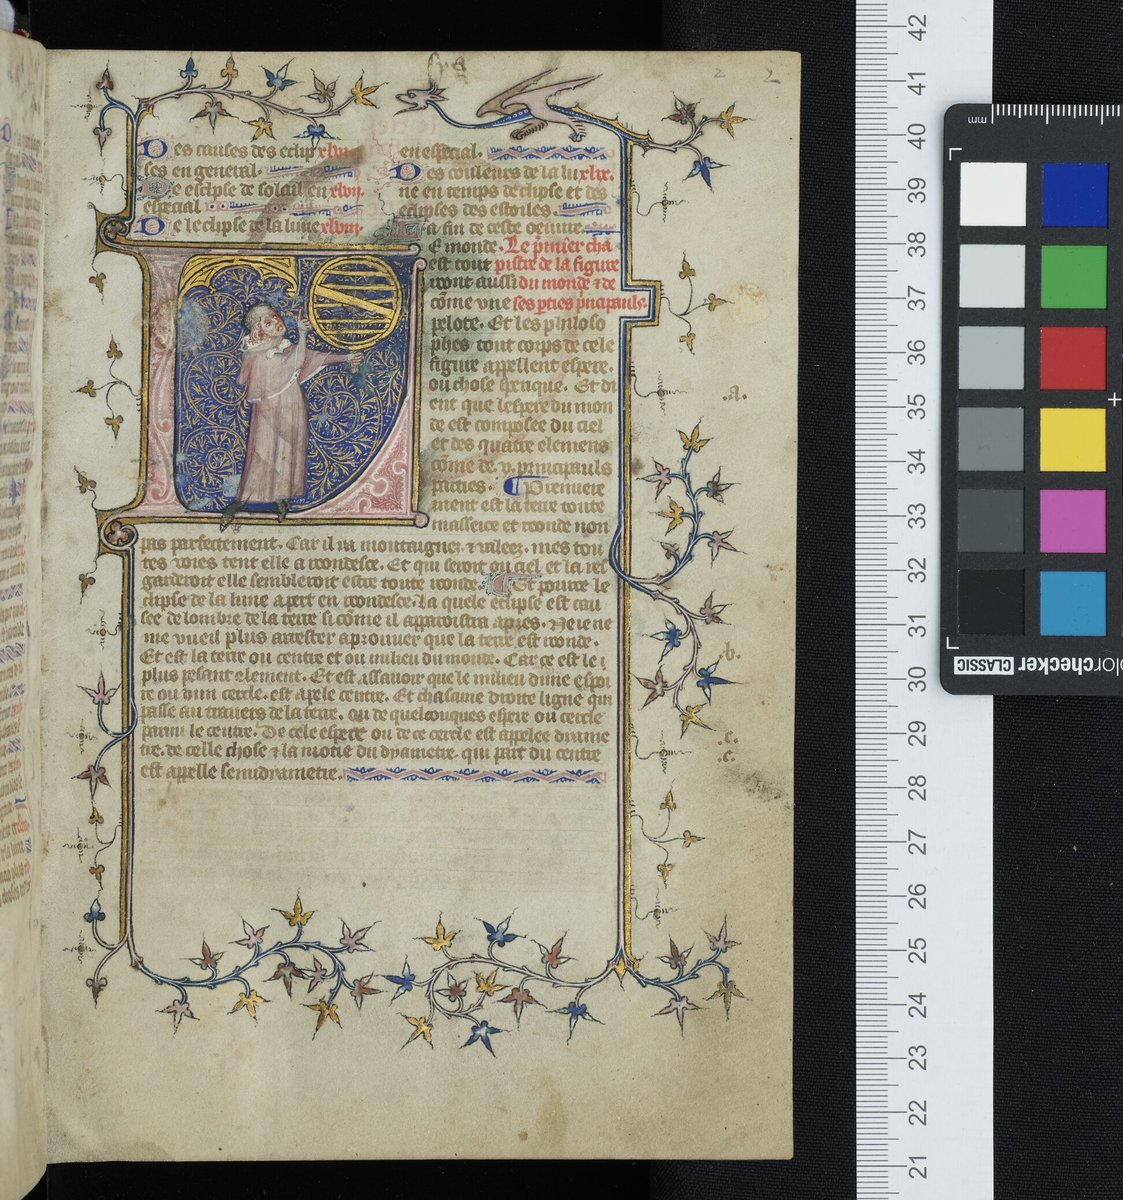 Des causes des eclip xlvi.
ses en general.
De esclipse de solail en xlvii.
especial
De leclipse de la lune xlviii.
en especial.
Des couleurs de la lu xlix.
ne en temps declipse et des
eclipses des estoiles.
La fin de ceste oeuure.
E monde. Le pmier cha
est tout pistre de la figure
ront aussi du monde et de
come vne ses pties pncipauls.
pelote. Et les philoso
phes tout corps de cele
figure appellent espere.
ou chose sperique. Et di
ent que lespere du mon
de est composee du ciel
et des quatre elemens
come de .v. principauls
parties. Premiere
ment est la terre toute
masseice et ronde non
pas parfectement. Car il ia montaignez et valeez. mes tou
tes voies tent elle a rondesce. Et qui seroit ou ciel et la re
garderoit elle sembleroit estre toute ronde. Et pource le
clipse de la lune apert en rondesce. la quele eclipse est cau
see de lombre de la terre si come il apparoistra apres. Ne ie ne
me vueil plus arrester a prouuer que la terre est ronde.
Et est la terre ou centre et ou milieu du monde. Car ce est le
plus pesant element. Et est assauoir que le milieu dune espe
re ou dun cercle. est apele centre. Et chascune droite ligne qui
passe au trauers de la terre. ou de quelconques espere ou cercle
parmi le centre. De cele espere ou de ce cercle est appelee dyame
tre. de celle chose et la moitie du dyametre. qui part du centre
est apelle semidyametre.
2
2
.a.
.b.
.c.
.c.
42
41
40
39
38
37
36
35
34
33
32
31
30
29
28
27
26
25
24
23
22
21
mm
colorchecker CLASSIC